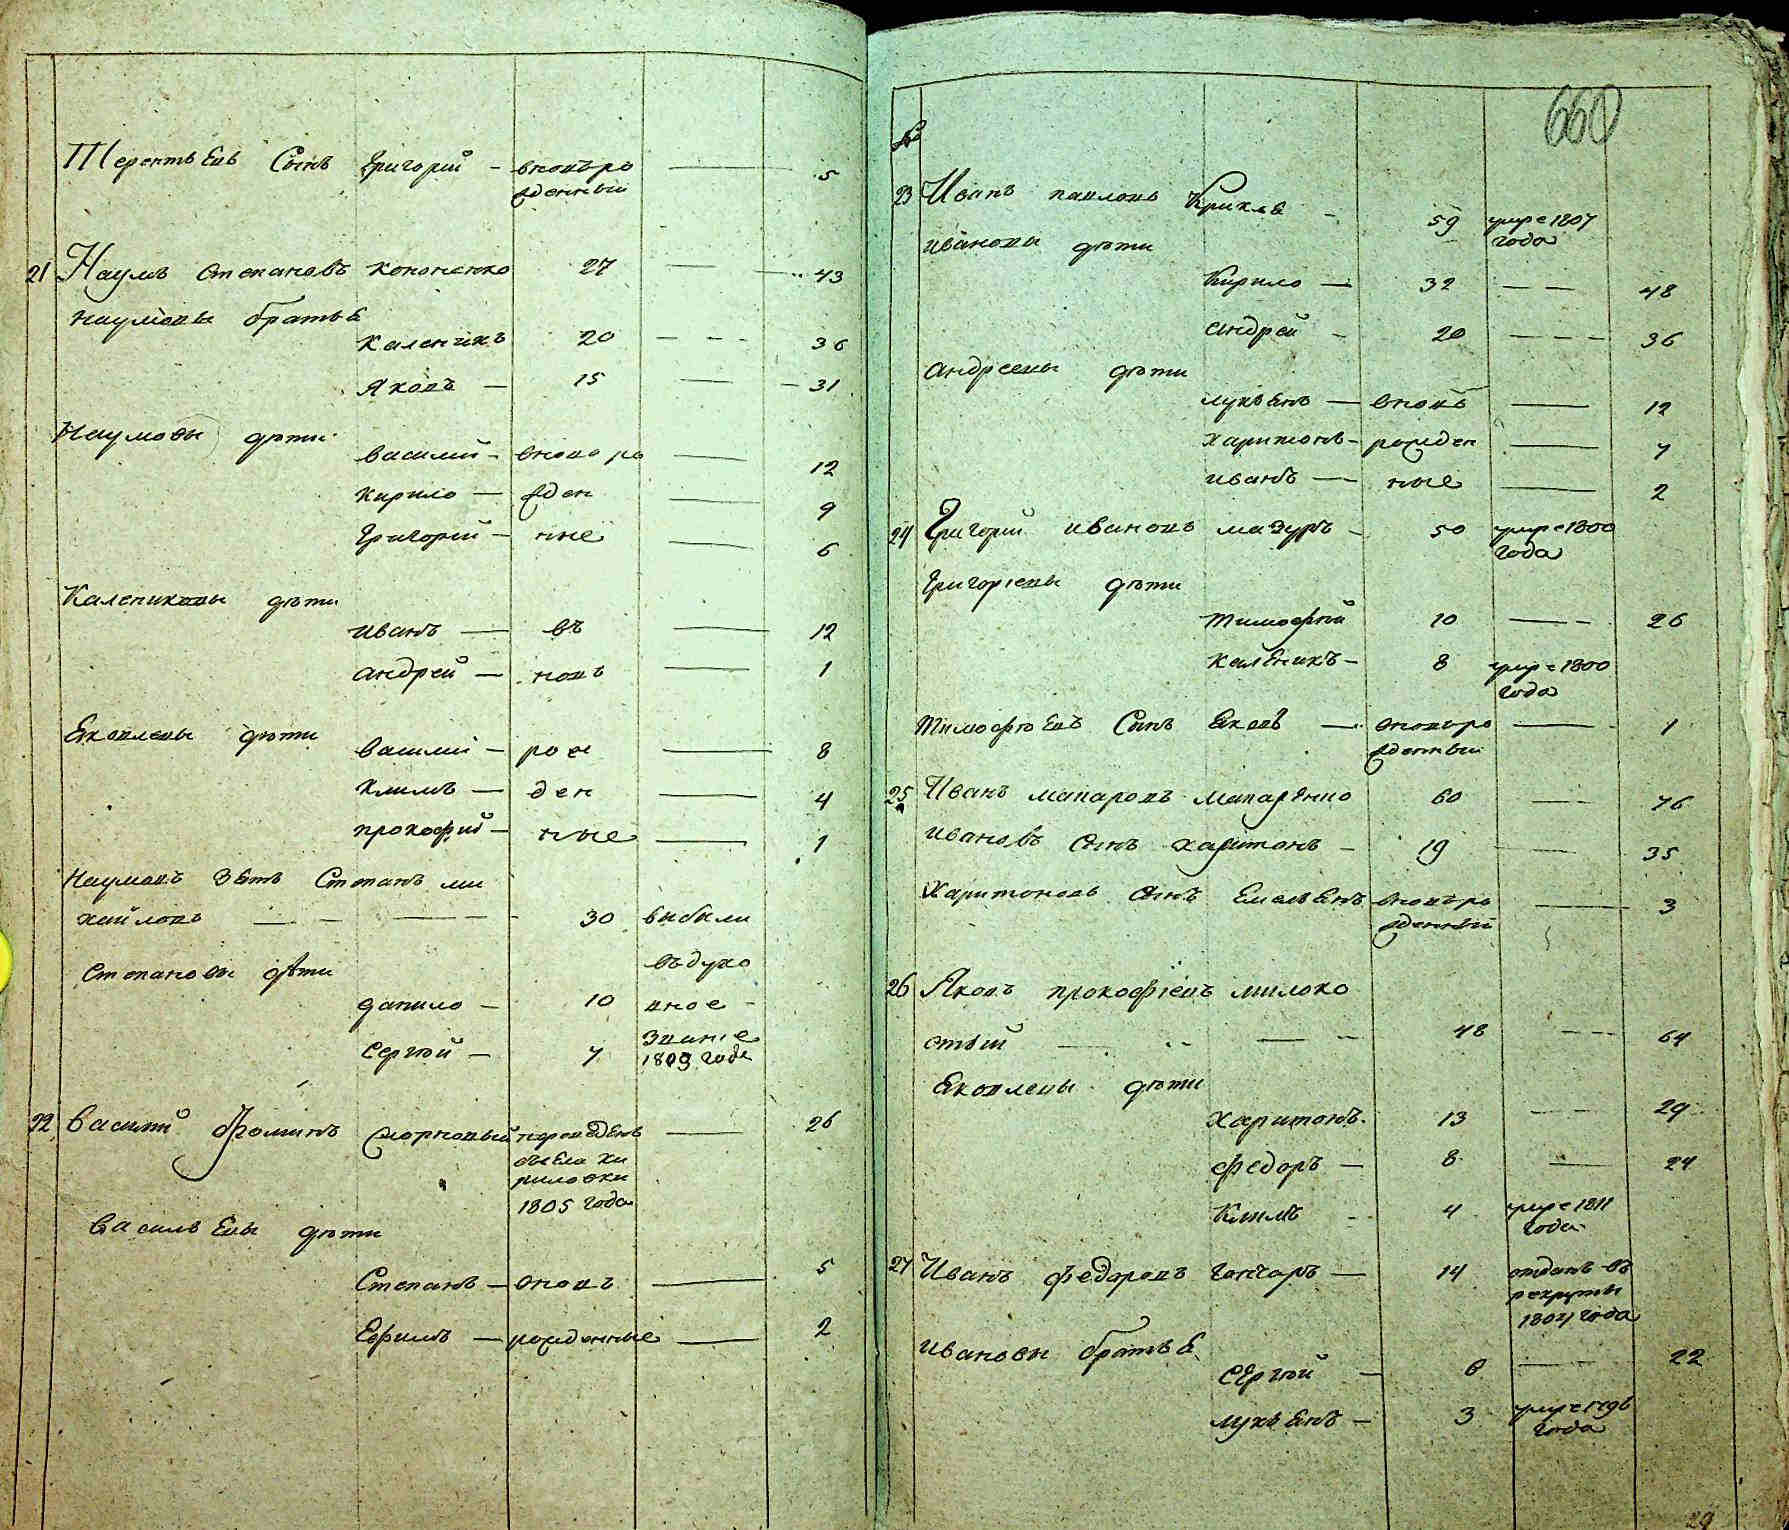 Терентьевъ Сынъ Григорий — вновъро — 5
жденный
21 Наумъ Степановъ Кононенко 27 — — 43
Наумовы братья
Каленикъ 20 — — — 36
Яковъ — 15 — — 31
Наумовы дѣти
Василий — вново ро — 12
Кирило — жден — 9
Григорий — ные — 6
Калениковы дѣти
Иванъ — въ — 12
Андрей — новъ — 1
Яковлевы дѣти
Василий — рож — 8
Климъ — ден — 4
Прокофий — ные — 1
Наумовъ Зять Степанъ ми
хайловъ — — — — 30 выбыли
въ духо
Степановы дѣти
данило — 10 вное —
Сергѣй — 7 Звание
1809 году
22 Василий Фоминъ Сморковый переведенъ — 26
съ села Ки
риловки
1805 года
Васильевы дѣти
Степанъ — вновъ — 5
Ефимъ — рожденные — 2
660
№
23 Иванъ павловъ Крикля — 59 умре 1807
года
Ивановы дѣти
Кирило — 32 — — 48
Андрей — 20 — — — 36
Андреевы дѣти
лукьянъ — вновъ — 12
харитонъ — рожден — 7
Иванъ — ные — 2
24 Григорий ивановъ мазуръ — 50 умре 1800
года
Григориевы дѣти
Тимофѣй 10 — — 26
Каленикъ — 8 умре 1800
года
Тимофѣевъ Сынъ Яковъ — вновъро — 1
жденный
25 Иванъ макаровъ макаренко 60 — 76
Ивановъ сынъ харитонъ — 19 — — 35
Харитоновъ сынъ Емельянъ вновъро — 3
жденный
26 Яковъ прокофиевъ милоко
стый — — — — 48 — — 64
Яковлевы дѣти
Харитонъ 13 — — 29
федоръ — 8 — 24
Климъ — 4 умре 1811
года
27 Иванъ федоровъ Гончаръ — 14 отданъ въ
рекруты
1804 года
Ивановы братья
Сергѣй — 6 — — 22
лукьянъ — 3 умре 1796
года